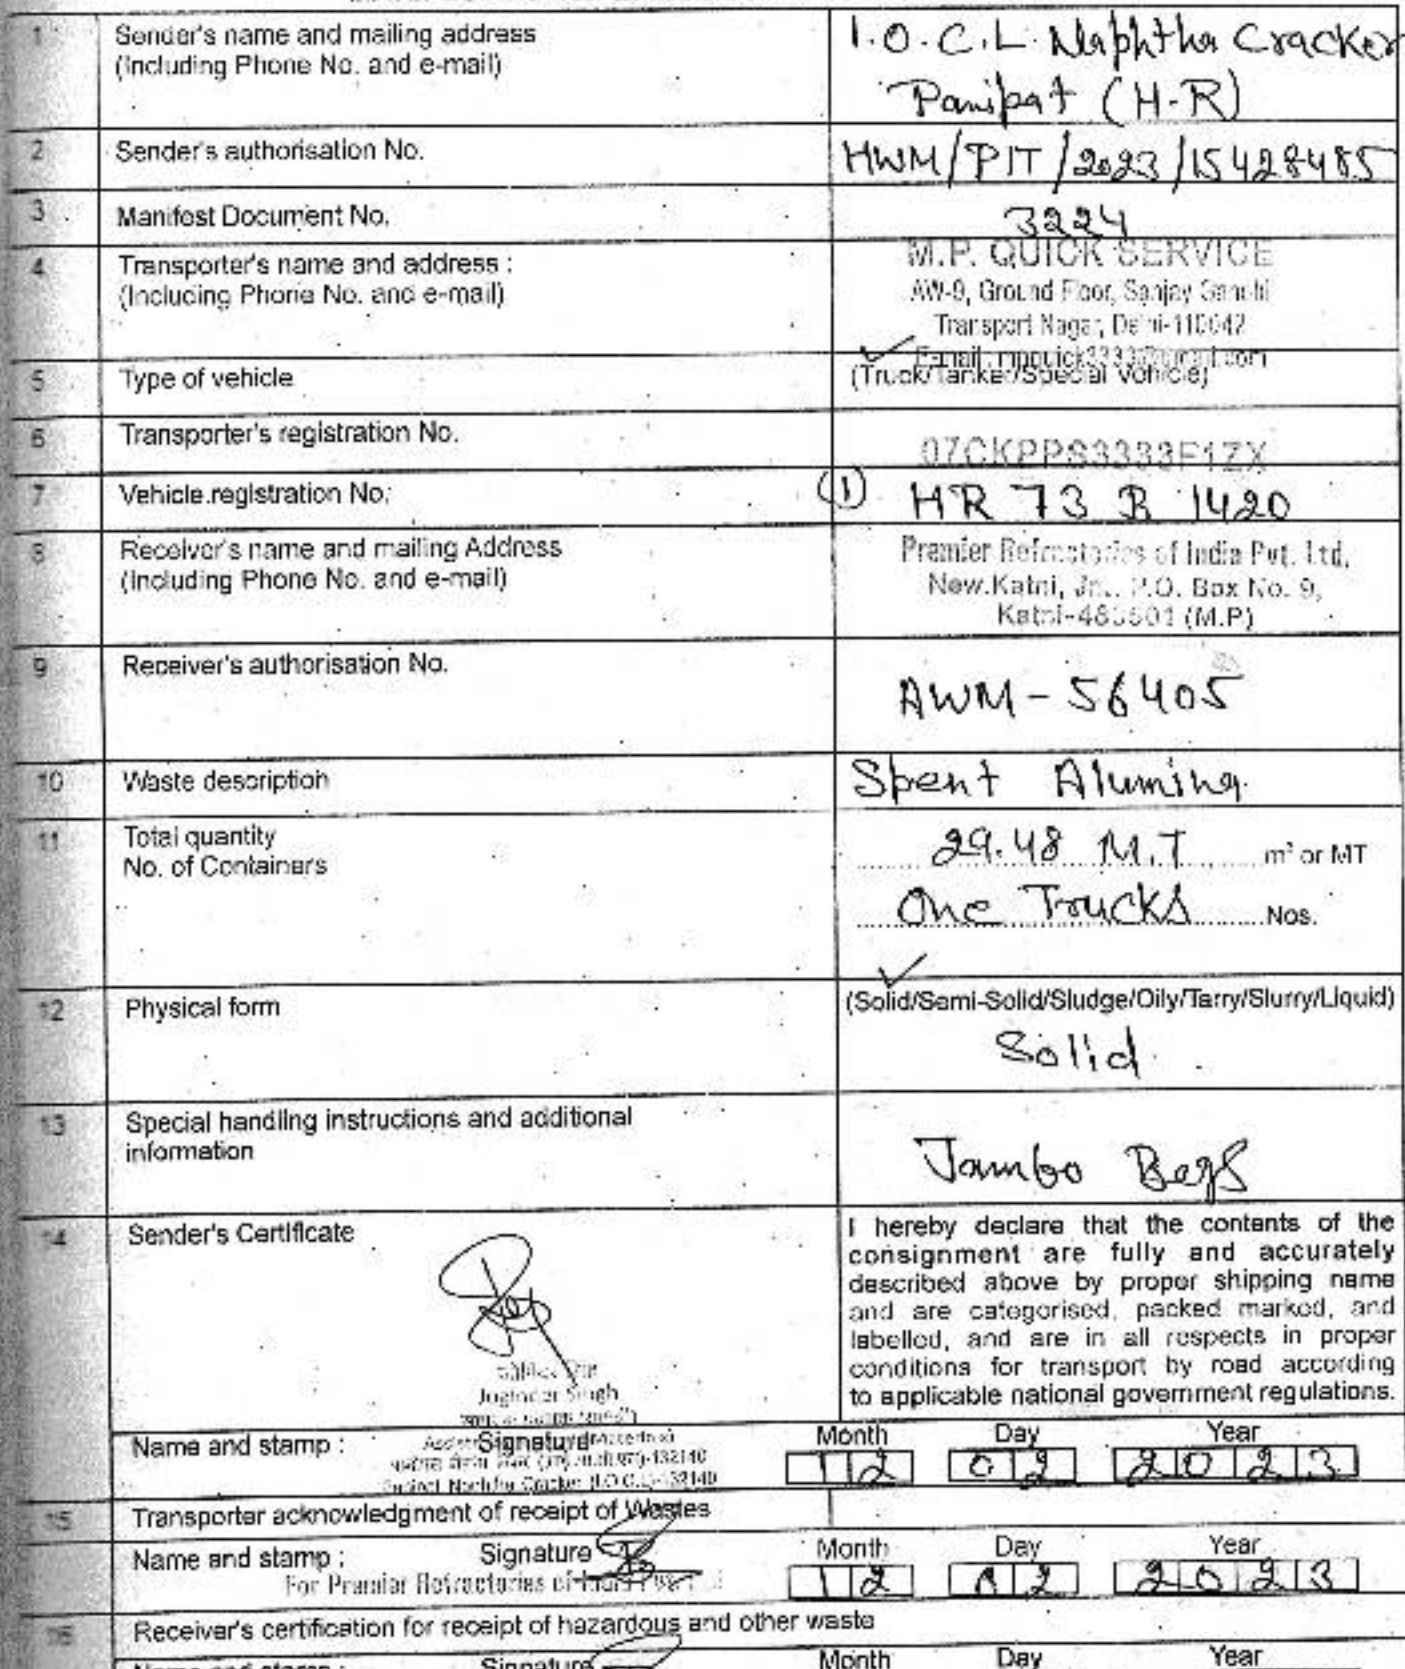 1 Sender's name and mailing address
(Including Phone No. and e-mail)
I.O.C.L. Naphtha Cracker
Panipat (H-R)
2 Sender's authorisation No.
HWM/PIT/2023/15428485
3 Manifest Document No.
3224
4 Transporter's name and address :
(Including Phone No. and e-mail)
M.P. QUICK SERVICE
AW-9, Ground Floor, Sanjay Gandhi
Transport Nagar, Delhi-110042
E-mail
5 Type of vehicle
(Truck/Tanker/Special Vehicle)
6 Transporter's registration No.
07CKPPS3333F1ZX
7 Vehicle registration No.
(1) HR 73 B 1420
8 Receiver's name and mailing Address
(Including Phone No. and e-mail)
Premier Refractories of India Pvt. Ltd.
New Katni, Jn. P.O. Box No. 9,
Katni-483501 (M.P)
9 Receiver's authorisation No.
AWM-56405
10 Waste description
Spent Alumina
11 Total quantity
No. of Containers
29.48 M.T m³ or MT
One Trucks Nos.
12 Physical form
(Solid/Semi-Solid/Sludge/Oily/Tarry/Slurry/Liquid)
Solid
13 Special handling instructions and additional
information
Jambo Bags
14 Sender's Certificate
I hereby declare that the contents of the
consignment are fully and accurately
described above by proper shipping name
and are categorised, packed marked, and
labelled, and are in all respects in proper
conditions for transport by road according
to applicable national government regulations.
Joginder Singh
Name and stamp : Signature Month Day Year
12 02 2023
15 Transporter acknowledgment of receipt of Wastes
Name and stamp : Signature Month Day Year
For Premier Refractories of India
12 02 2023
16 Receiver's certification for receipt of hazardous and other waste
Name and stamp : Signature Month Day Year